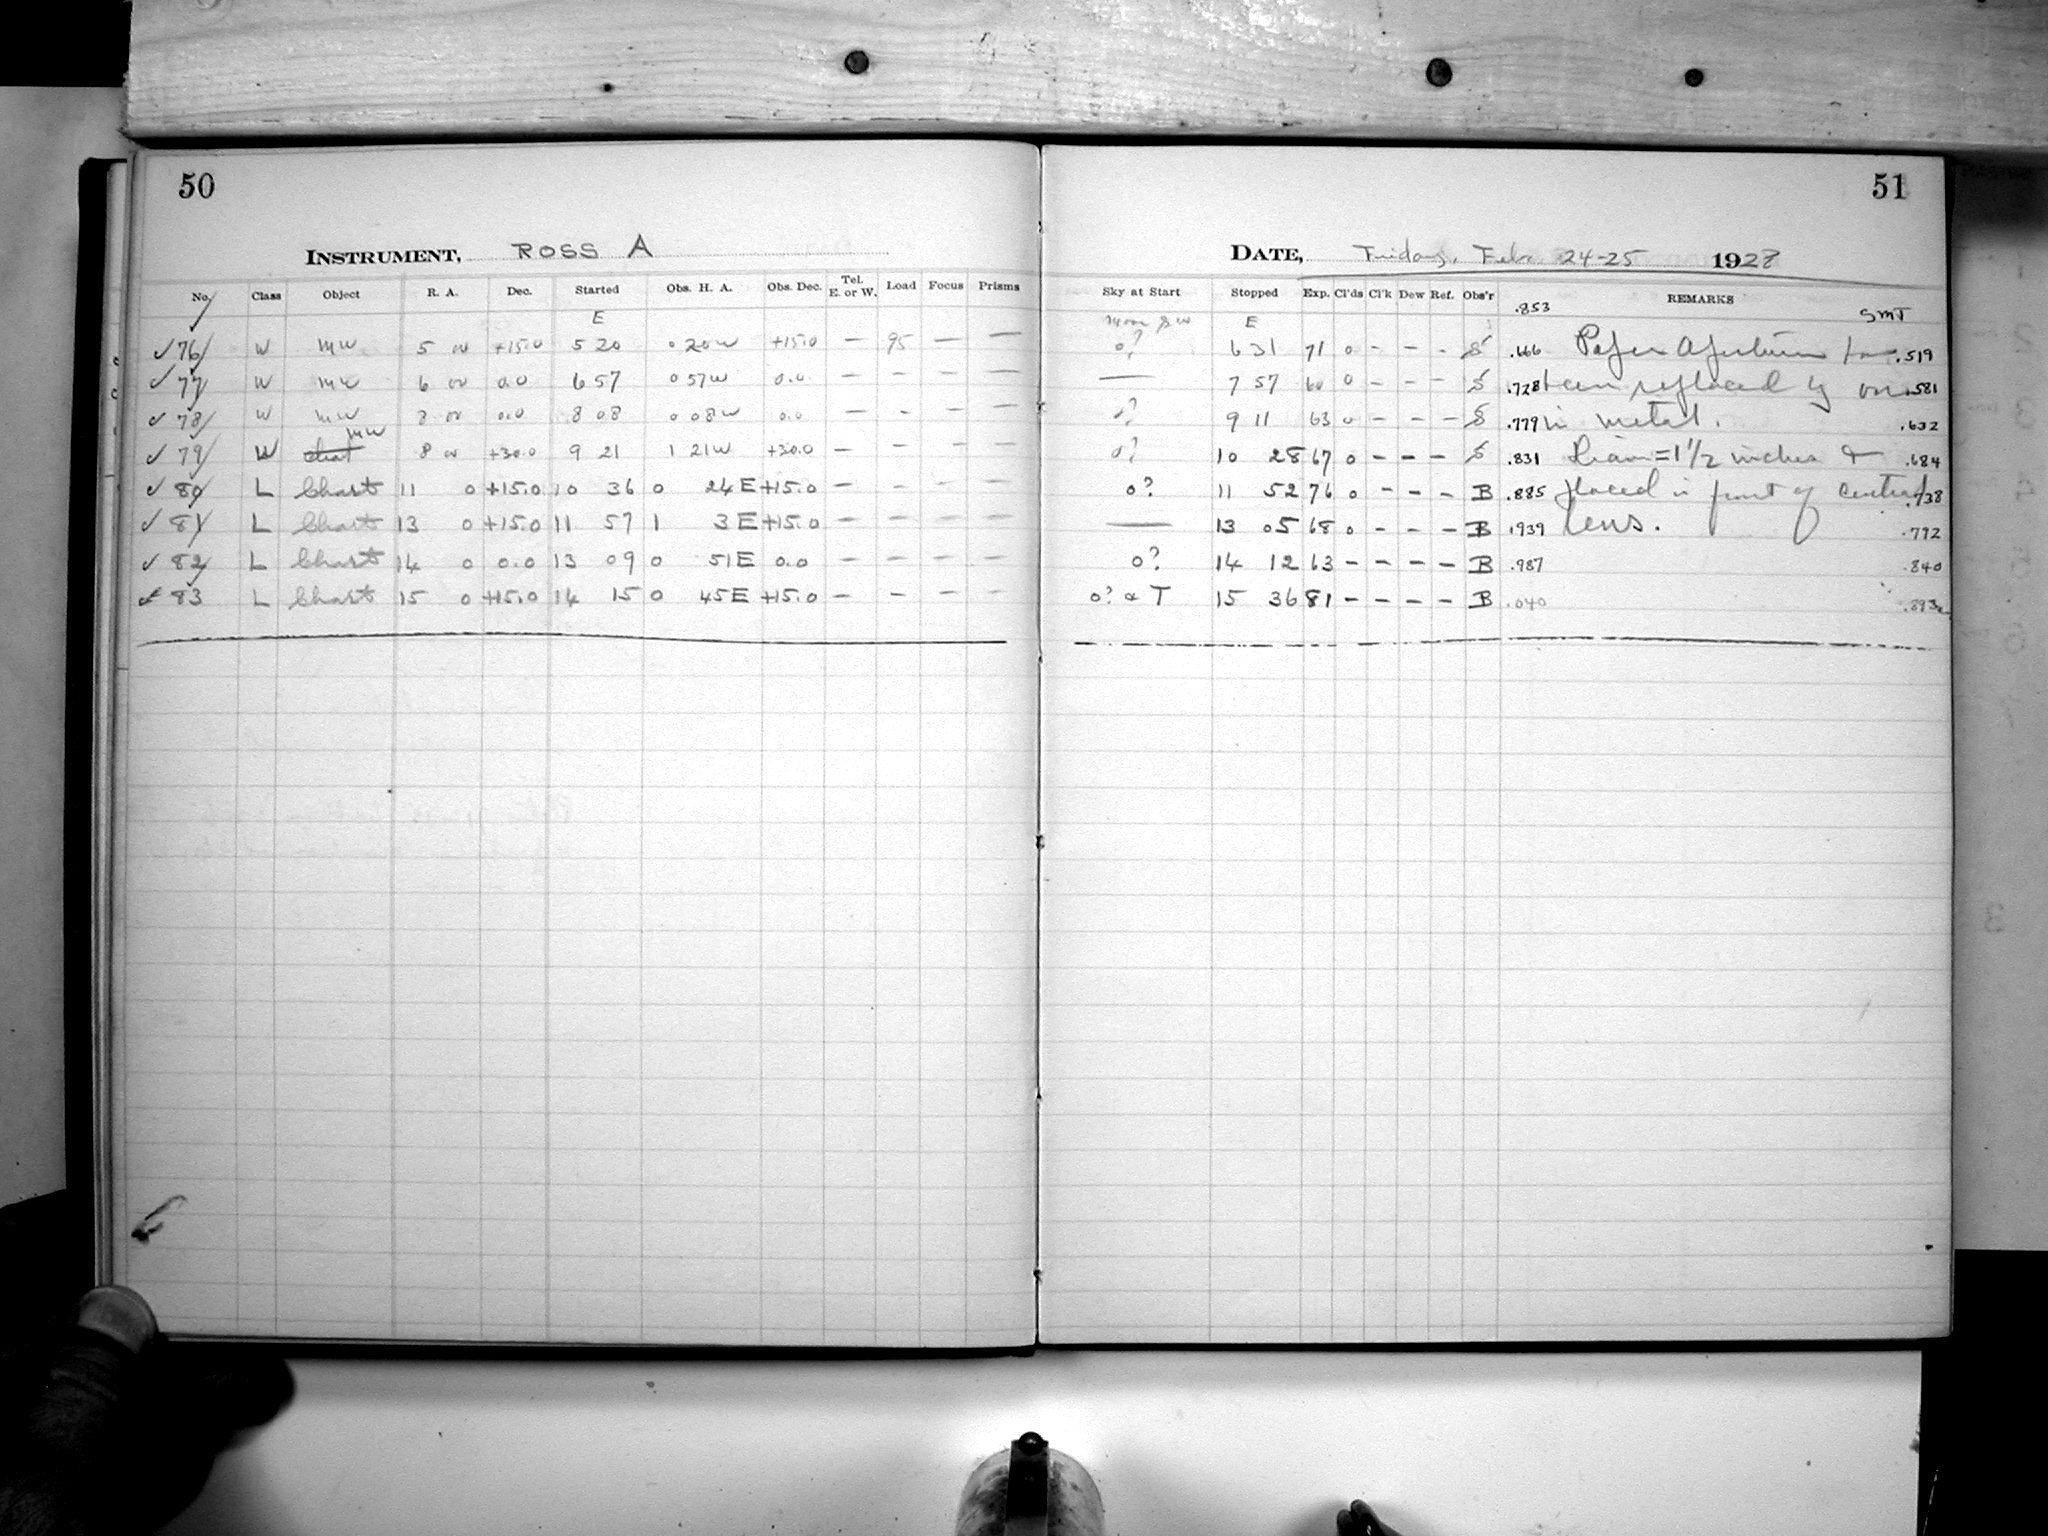 50
INSTRUMENT, ROSS A
No. Class Object R. A. Dec. Started Obs. H. A. Obs. Dec. Tel. E. or W. Load Focus Prisms
E
✓ 76 W MW 5 00 +15.0 5 20 0 20W +15.0 — 95 — —
✓ 77 W MW 6 00 0.0 6 57 0 57W 0.0 — — — —
✓ 78 W MW 8 00 0.0 8 08 0 08W 0.0 — - — —
✓ 79 W MW 8 00 +30.0 9 21 1 21W +30.0 — — — —
✓ 80 L Chart 11 0 +15.0 10 36 0 24E +15.0 — — — —
✓ 81 L Chart 13 0 +15.0 11 57 1 3E +15.0 — — — —
✓ 82 L Chart 14 0 0.0 13 09 0 51E 0.0 — — — —
✓ 83 L Chart 15 0 +15.0 14 15 0 45E +15.0 — — — —
51
DATE, Friday, Feb. 24-25 1928
Sky at Start Stopped Exp. Cl'ds Cl'k Dew Ref. Obs'r .853 REMARKS GMT
Moon E
o? 6 31 71 0 - - - S .666 Paper Aperture has .519
— 7 57 60 0 - - - S .728 been replaced by one .581
o? 9 11 63 0 - - - S .779 in metal. .632
o? 10 28 67 0 - - - S .831 Diam = 1 1/2 inches & .684
o? 11 52 76 0 - - - B .885 placed in front of central .738
— 13 05 68 0 - - - B .939 lens. .792
o? 14 12 63 - - - - B .987 .840
o? & T 15 36 81 - - - - B .040 .893